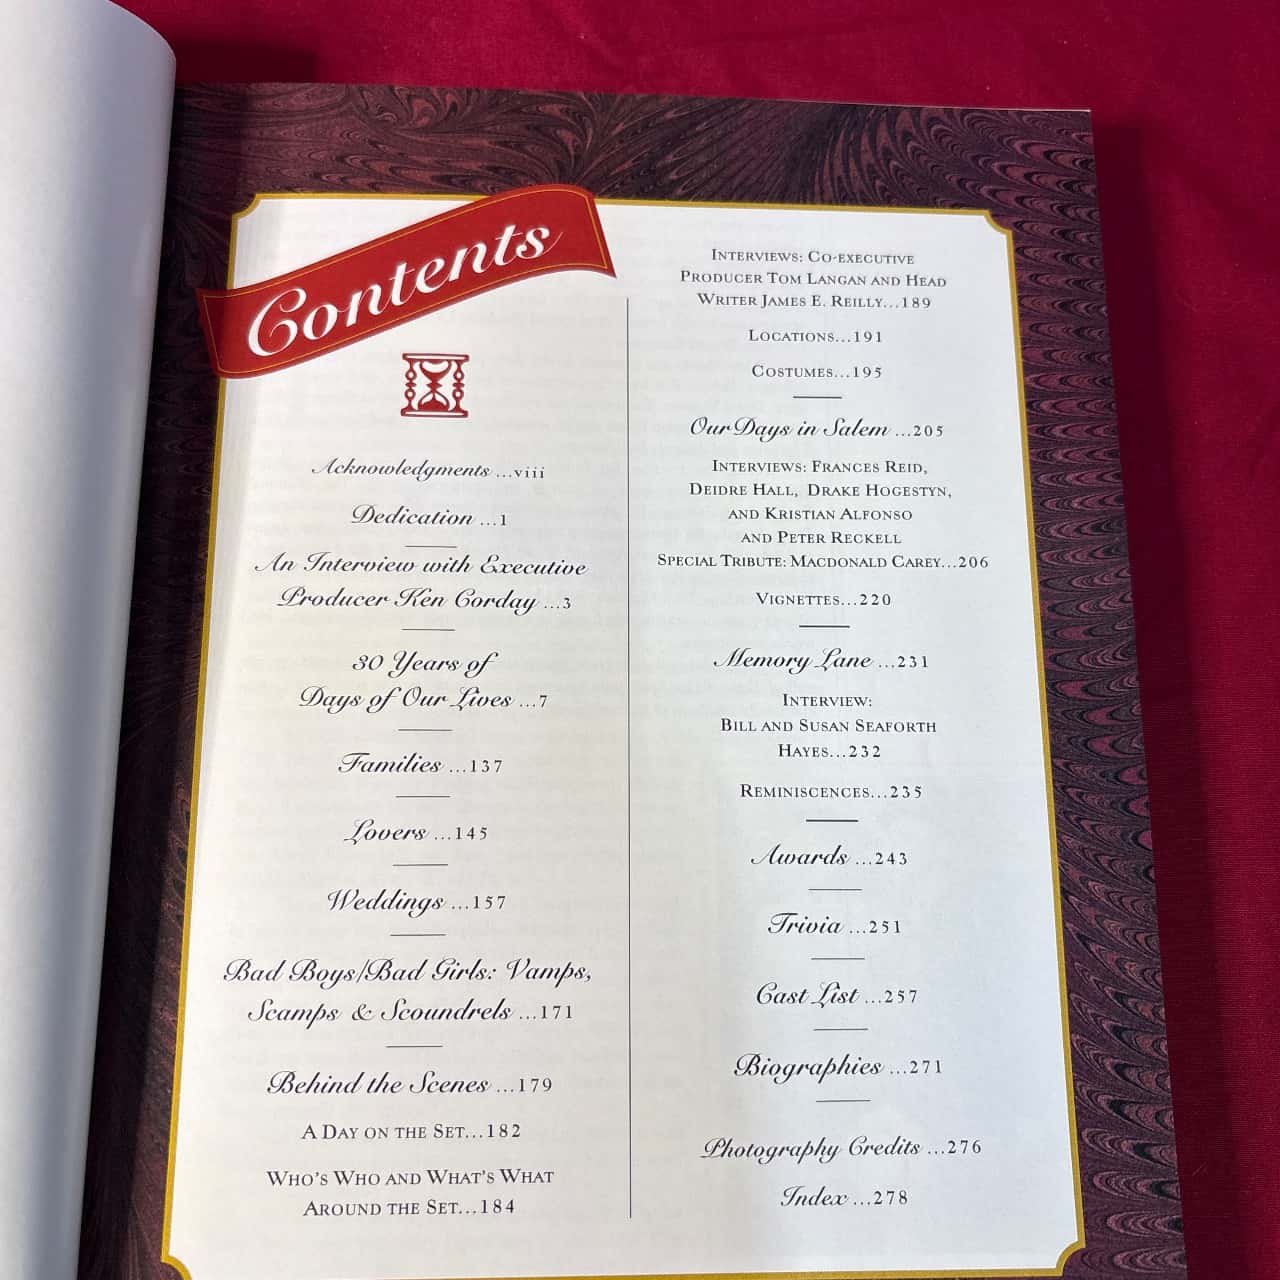 Contents
Acknowledgments ...viii
Dedication ...1
An Interview with Executive
Producer Ken Corday ...3
30 Years of
Days of Our Lives ...7
Families ...137
Lovers ...145
Weddings ...157
Bad Boys/Bad Girls: Vamps,
Scamps & Scoundrels ...171
Behind the Scenes ...179
A Day on the Set...182
Who's Who and What's What
Around the Set...184
Interviews: Co-executive
Producer Tom Langan and Head
Writer James E. Reilly...189
Locations...191
Costumes...195
Our Days in Salem ...205
Interviews: Frances Reid,
Deidre Hall, Drake Hogestyn,
and Kristian Alfonso
and Peter Reckell
Special Tribute: Macdonald Carey...206
Vignettes...220
Memory Lane ...231
Interview:
Bill and Susan Seaforth
Hayes...232
Reminiscences...235
Awards ...243
Trivia ...251
Cast List ...257
Biographies ...271
Photography Credits ...276
Index ...278